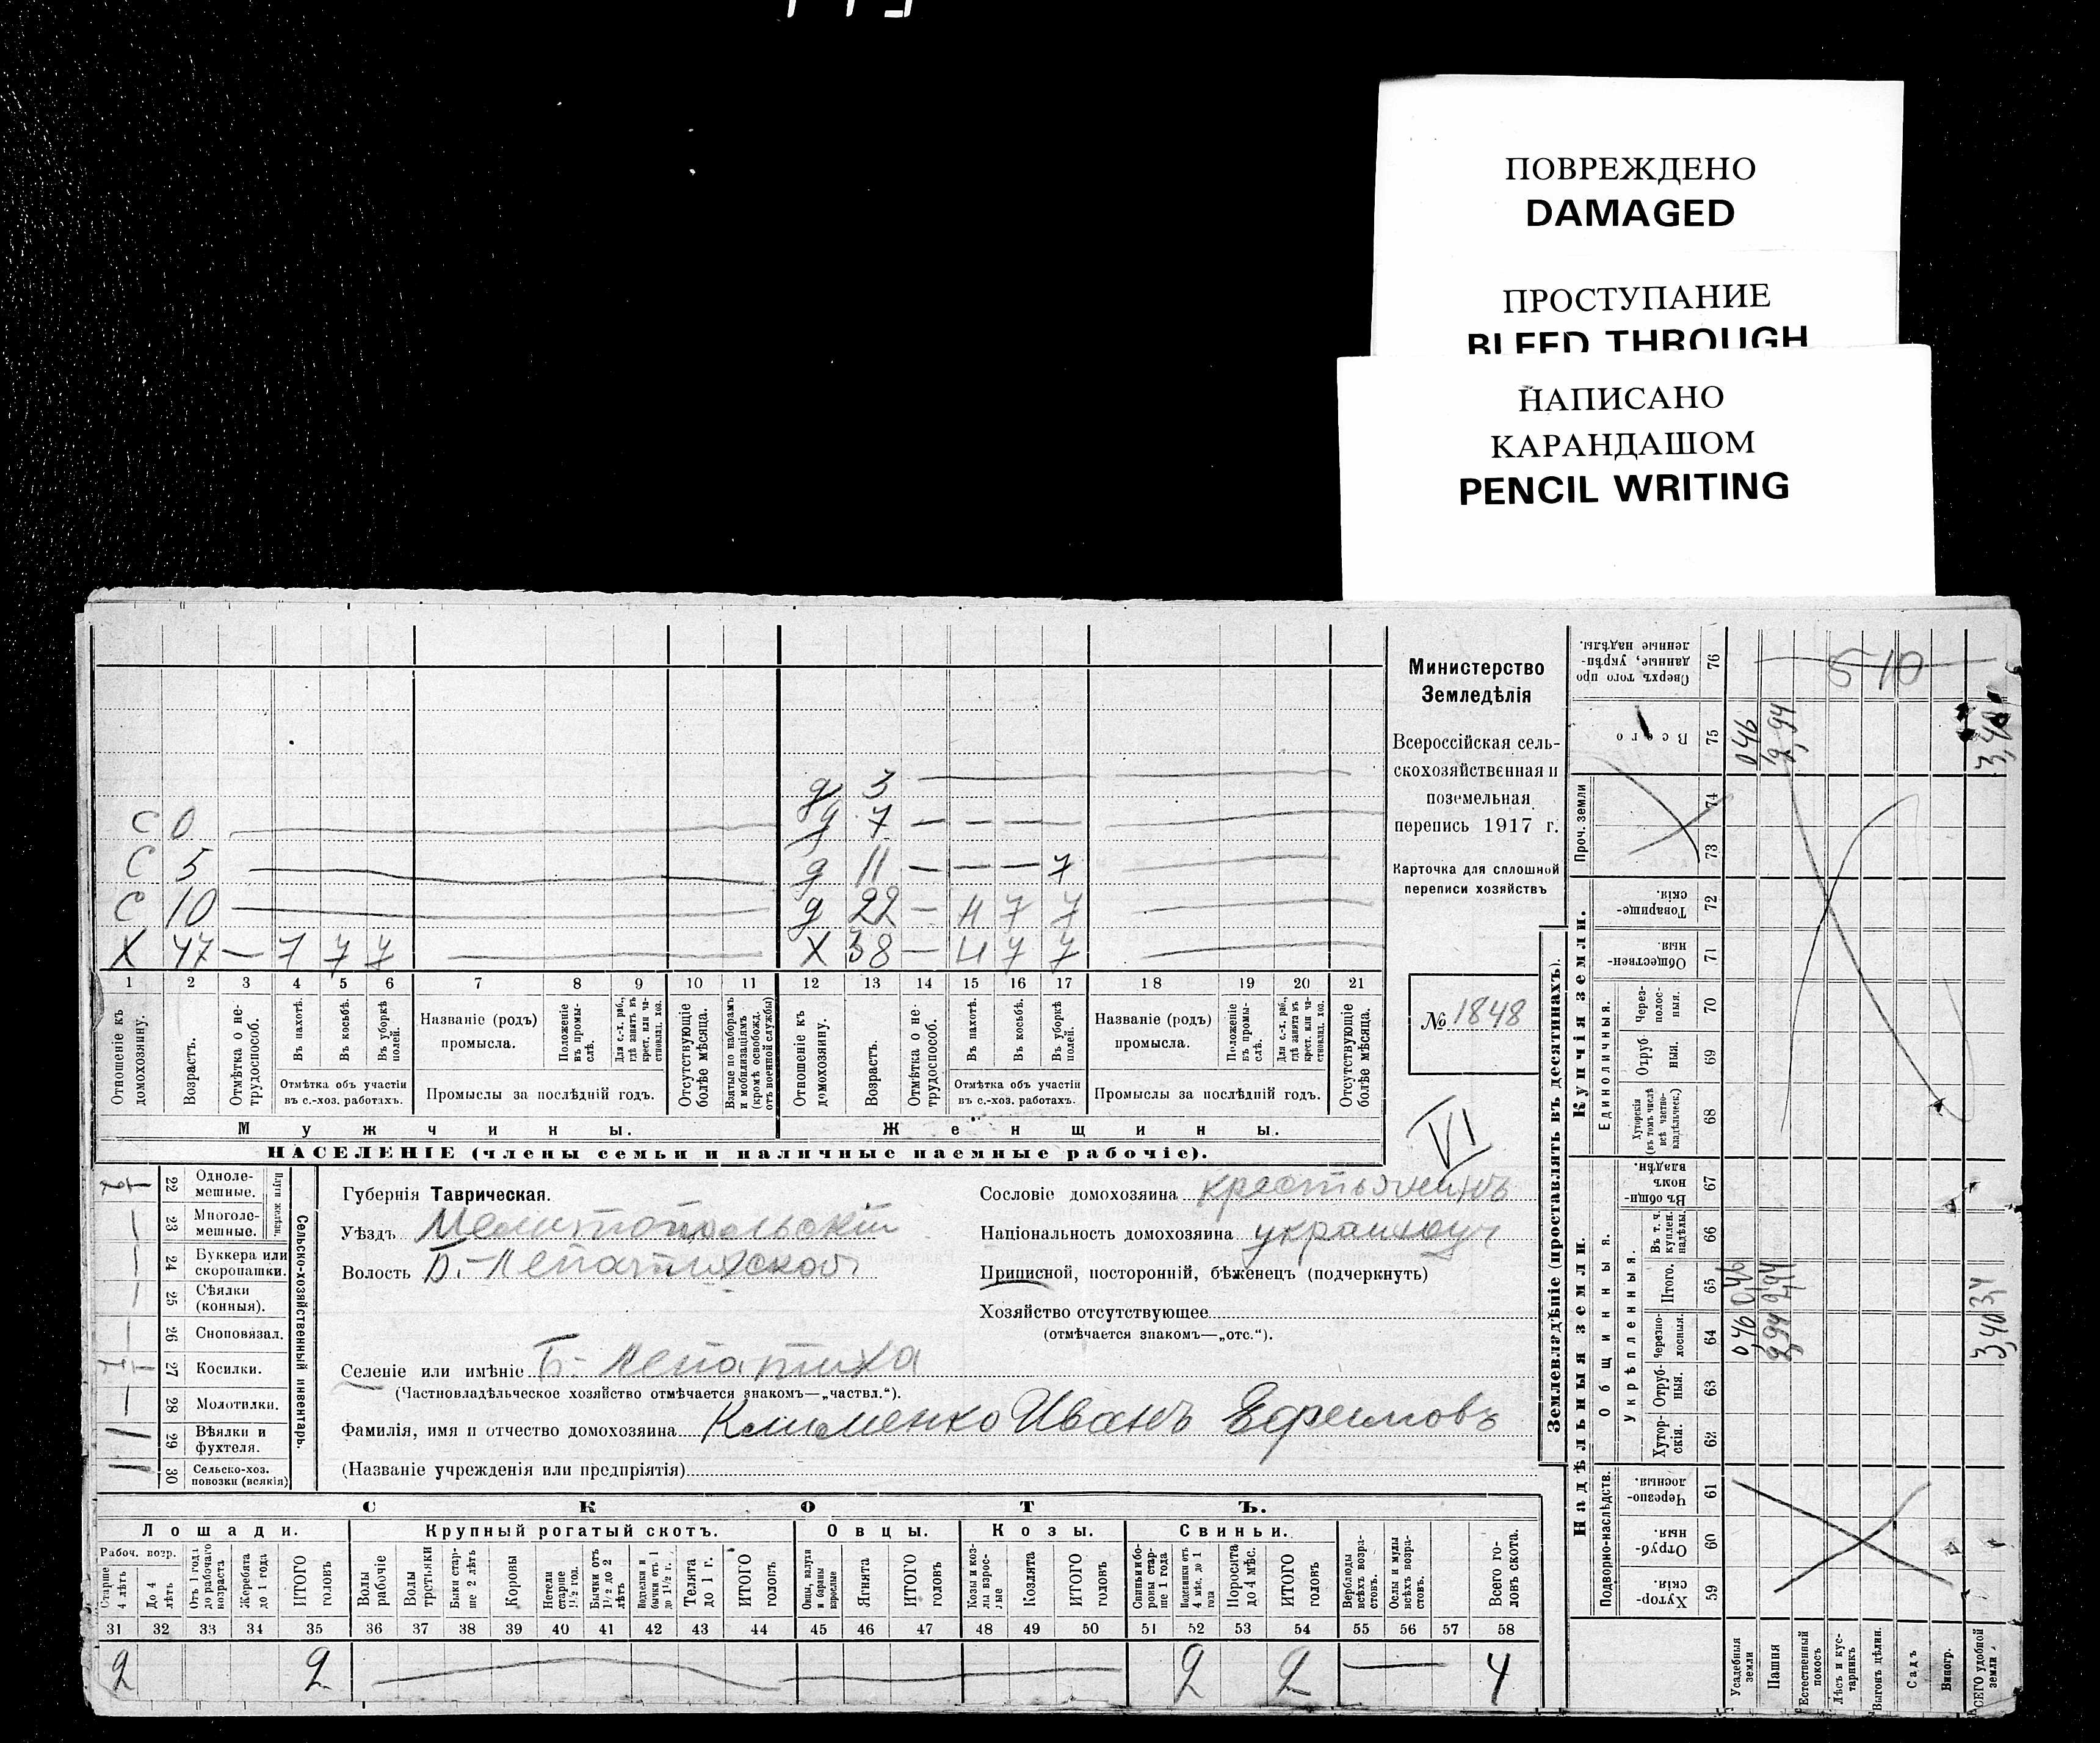 ПОВРЕЖДЕНО
DAMAGED
ПРОСТУПАНИЕ
BLEED THROUGH
НАПИСАНО
КАРАНДАШОМ
PENCIL WRITING
Министерство
Земледѣлія
Всероссійская сель-
скохозяйственная и
поземельная
перепись 1917 г.
Карточка для сплошной
переписи хозяйствъ
№ 1848
VI
д 3
С 0 д 7 — — —
С 5 д 11 — — — 7
С 10 д 22 — Н 7 7
Х 47 — 7 7 7 Х 38 — Н 7 7
1 2 3 4 5 6 7 8 9 10 11 12 13 14 15 16 17 18 19 20 21
Отношеніе къ домохозяину.
Возрастъ.
Отмѣтка о не-трудоспособ.
Въ пахотѣ.
Въ косьбѣ.
Въ уборкѣ полей.
Отмѣтка объ участіи
въ с.-хоз. работахъ.
Названіе (родъ)
промысла.
Положеніе въ промыслѣ.
Для с.-х. раб., гдѣ занятъ въ крест. или частновлад. хоз.
Промыслы за послѣдній годъ.
Отсутствующіе болѣе мѣсяца.
Взятые по наборамъ и мобилизаціямъ (кромѣ освобожд. отъ военной службы)
Отношеніе къ домохозяину.
Возрастъ.
Отмѣтка о не-трудоспособ.
Въ пахотѣ.
Въ косьбѣ.
Въ уборкѣ полей.
Отмѣтка объ участіи
въ с.-хоз. работахъ.
Названіе (родъ)
промысла.
Положеніе въ промыслѣ.
Для с.-х. раб., гдѣ занята въ крест. или частновлад. хоз.
Промыслы за послѣдній годъ.
Отсутствующіе болѣе мѣсяца.
Мужчины. Женщины.
НАСЕЛЕНІЕ (члены семьи и наличные наемные рабочіе).
22 Одноле-мешные.
23 Многоле-мешные.
Плуги желѣзн.
24 Буккера или скоропашки.
25 Сѣялки (конныя).
26 Сноповязал.
27 Косилки.
28 Молотилки.
29 Вѣялки и фухтеля.
30 Сельско-хоз. повозки (всякія)
Сельско-хозяйственный инвентарь.
Губернія Таврическая.
Уѣздъ Мелитопольскій
Волость Б.-Лепатихской
Сословіе домохозяина крестьянинъ
Національность домохозяина
Приписной, посторонній, бѣженецъ (подчеркнуть)
Хозяйство отсутствующее
(отмѣчается знакомъ—„отс.“).
Селеніе или имѣніе Б.-Лепатиха
(Частновладѣльческое хозяйство отмѣчается знакомъ—„частвл.“).
Фамилія, имя и отчество домохозяина Клименко Иванъ Ефимовъ
(Названіе учрежденія или предпріятія)
СКОТЪ.
Лошади. Крупный рогатый скотъ. Овцы. Козы. Свиньи.
Рабоч. возр.
Старше 4 лѣтъ
До 4 лѣтъ
Отъ 1 года до рабочаго возраста
Жеребята до 1 года
ИТОГО головъ
Волы рабочіе
Волы третьяки
Быки старше 2 лѣтъ
Коровы
Нетели старше 1½ год.
Бычки отъ 1½ до 2 лѣтъ
Подтелки и бычки отъ 1 до 1½ г.
Телята до 1 г.
ИТОГО головъ
Овцы, валухи и бараны взрослые
Ягнята
ИТОГО головъ
Козы и козлы взрослые
Козлята
ИТОГО головъ
Свиньи и бороны старше 1 года
Подсвинки отъ 4 мѣс. до 1 года
Поросята до 4 мѣс.
ИТОГО головъ
Верблюды всѣхъ возрастовъ.
Ослы и мулы всѣхъ возрастовъ.
Всего головъ скота.
31 32 33 34 35 36 37 38 39 40 41 42 43 44 45 46 47 48 49 50 51 52 53 54 55 56 57 58
2 2 2 2 4
Землевладѣніе (проставлять въ десятинахъ).
Купчія земли.
Надѣльныя земли.
Сверхъ того проданные, укрѣпленные надѣлы. 76 510
Всего 75 0,46 2,94 3,40
Проч. земли 74 73
Товарище-скія. 72
Обществен-ныя. 71
Единоличныя.
Через-полос-ныя. 70
Отруб-ныя. 69
Хуторскія (въ томъ числѣ всѣ частно-владѣльческ.) 68
Общинныя.
Въ общин-номъ владѣн. 67
Укрѣпленныя.
Въ т. ч. куплен. надѣлы. 66
Итого. 65 0,46 2,94 3,4
Черезпо-лосныя. 64 0,46 2,94 3,40
Отруб-ныя. 63
Хутор-скія. 62
Подворно-наслѣдств.
Черезпо-лосныя. 61
Отруб-ныя. 60
Хутор-скія. 59
Усадебныя земли
Пашня
Естественный покосъ
Лѣсъ и кус-тарникъ
Выгонъ цѣлин.
Садъ
Виногр.
ВСЕГО удобной земли